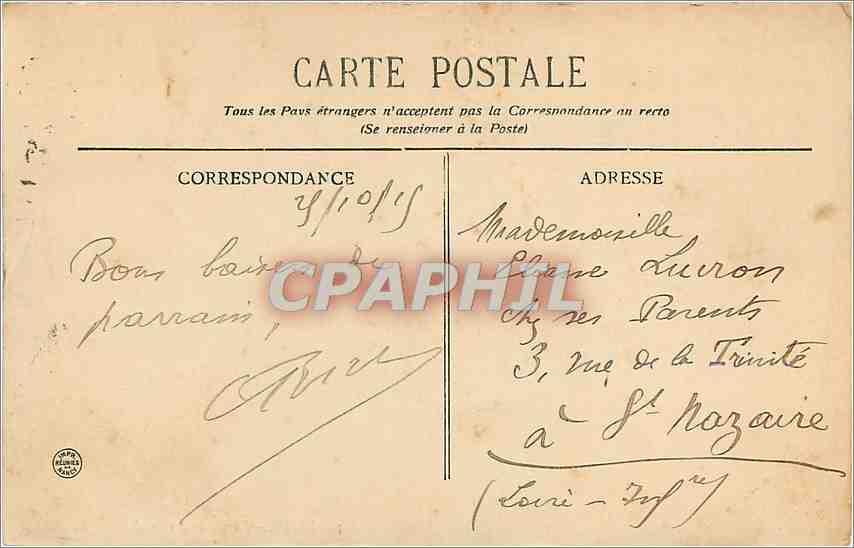 CARTE POSTALE
Tous les Pays étrangers n'acceptent pas la Correspondance au recto
(Se renseigner à la Poste)
CORRESPONDANCE
Bons baisers de
parrain,
ADRESSE
Mademoiselle
Lucron
chz ses Parents
3, rue de la Trinité
à St Nazaire
(Loire - Infre)
CPAPHIL
IMPR.
RÉUNIES
DE
NANCY